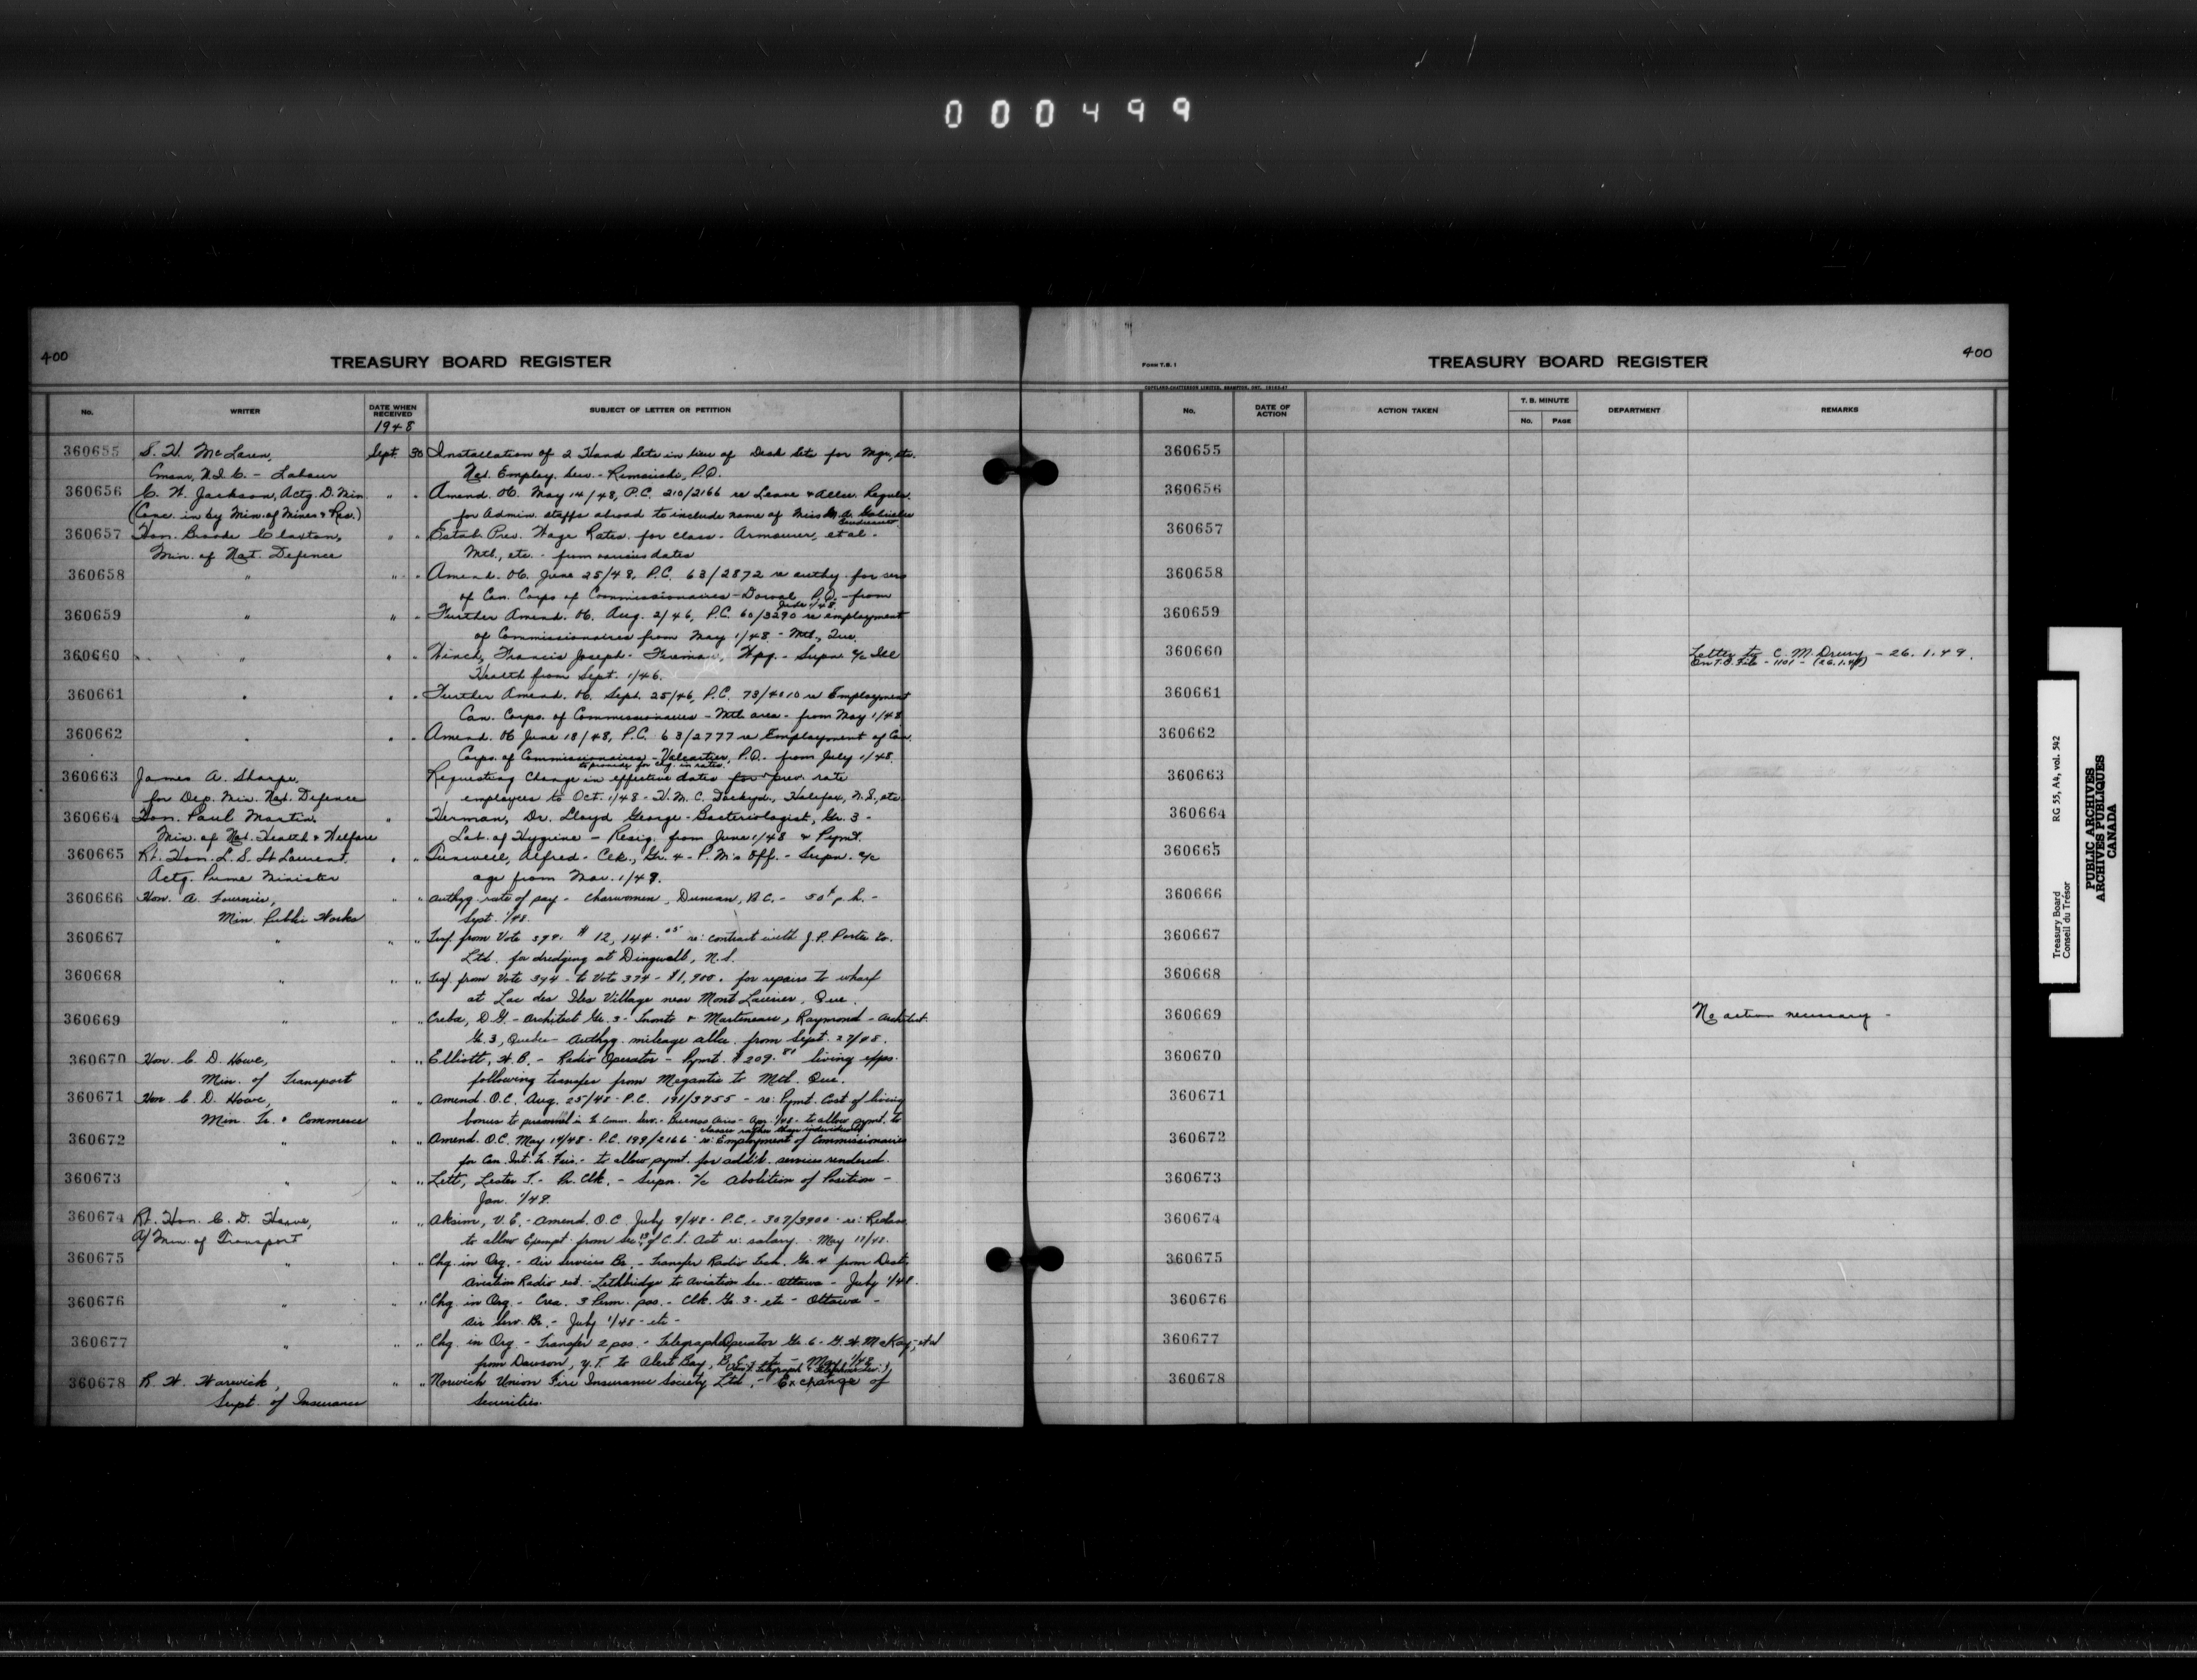 000499
400
TREASURY BOARD REGISTER
No. WRITER DATE WHEN RECEIVED SUBJECT OF LETTER OR PETITION
1948
360655 S. H. McLaren, Sept. 30 Installation of 2 Hand Sets in lieu of Desk Sets for Mgr., etc.
- Labour Nat. Employ. Serv. - Rimouski, P.Q.
360656 C. W. Jackson, Actg. D. Min. " " Amend. OC. May 14/48, P.C. 210/2166 re Leave & Allce. Regul.
(Conc. in by Min. of Mines & Res.) for Admin. staffs abroad to include name of Miss
360657 Hon. Brooke Claxton, " " Estab. Prev. Wage Rates for class - Armourer, et al -
Min. of Nat. Defence Mtl., etc. - from various dates
360658 " " " Amend. OC. June 25/48, P.C. 63/2872 re authy. for serv.
of Can. Corps of Commissionaires - Dorval P.Q. - from
360659 " " " Further Amend. OC. Aug. 2/46, P.C. 60/3290 re employment
of Commissionaires from May 1/48 - Mtl., Que.
360660 " " " Winch, Francis Joseph - Fireman, Wpg. - Supn. a/c Ill
Health from Sept. 1/46.
360661 " " " Further Amend. OC. Sept. 25/46, P.C. 73/4010 re Employment
Can. Corps. of Commissionaires - Mtl. area - from May 1/48
360662 " " " Amend. OC June 18/48, P.C. 63/2777 re Employment of Can.
Corps. of Commissionaires - Valcartier, P.Q. from July 1/48.
to provide for chg. in rates
360663 James A. Sharpe, Requesting Change in effective dates for prev. rate
for Dep. Min. Nat. Defence employees to Oct. 1/48 - H.M.C. Dockyd., Halifax, N.S., etc.
360664 Hon. Paul Martin, " Herman, Dr. Lloyd George - Bacteriologist, Gr. 3 -
Min. of Nat. Health & Welfare Lab. of Hygiene - Resig. from June 1/48 & Pymt.
360665 Rt. Hon. L. S. St Laurent, " " Alfred - Clk., Gr. 4 - P.M's Off. - Supn. a/c
Actg. Prime Minister age from Nov. 1/48.
360666 Hon. A. Fournier, " " Authzg. rate of pay - Charwomen, Duncan, B.C. - 50¢ p.h. -
Min. Public Works Sept. 1/48.
360667 " " " Trsf. from Vote 394. $12,144.05 re: contract with J.P. Porter Co.
Ltd. for dredging at Dingwall, N.S.
360668 " " " Trsf. from Vote 394 - to Vote 374 - $1,900. for repairs to wharf
at Lac des Iles Village near Mont Laurier, Que.
360669 " " " Creba, D.G. - Architect Gr. 3 - Toronto & Martineau, Raymond - Architect.
Gr. 3, Quebec - Authzg. mileage allce. from Sept. 27/48.
360670 Hon. C. D. Howe, " " Elliott, H.B. - Radio Operator - Pymt. $209.81 living exps.
Min. of Transport following transfer from Megantic to Mtl. Que.
360671 Hon. C. D. Howe, " " Amend. O.C. Aug. 25/48 - P.C. 191/3755 - re: Pymt. Cost of living
Min. Tr. & Commerce bonus to personnel in Tr. Comm. Serv. - Buenos Aires - Apr. 1/48 - to allow pymt. to
classes rather than individuals
360672 " " " Amend. O.C. May 14/48 - P.C. 199/2166 - re: Employment of Commissionaires
for Can. Int. Tr. Fair. - to allow pymt. for addit. services rendered.
360673 " " " Lett, Lester T. - Pr. Clk. - Supn. a/c Abolition of Position -
Jan. 1/49.
360674 Rt. Hon. C. D. Howe, " " Aksim, V.E. - Amend. O.C. July 9/48 - P.C. - 307/3900 - re: Reclass.
A/ Min. of Transport to allow Exempt. from Sec. 13 of C.S. Act re: salary. May 17/48.
360675 " " " Chg. in Org. - Air Services Br. - Transfer Radio Tech. Gr. 4 from Dist.
Aviation Radio est. - Lethbridge to Aviation Sec. - Ottawa - July 1/48.
360676 " " " Chg. in Org. - Crea. 3 Perm. pos. - Clk. Gr. 3 - etc - Ottawa -
Air Serv. Br. - July 1/48 - etc -
360677 " " " Chg. in Org. - Transfer 2 pos. - Telegraph Operator Gr. 6 - G.H. McKay, et al
from Dawson, Y.T. to Alert Bay, B.C. - May 1/48
(Gov't Telegraph & Telephone Serv.)
360678 R. W. Warwick, " " Norwich Union Fire Insurance Society Ltd. - Exchange of
Supt. of Insurance Securities.
FORM T.B. 1
TREASURY BOARD REGISTER
400
No. DATE OF ACTION ACTION TAKEN T. B. MINUTE No. PAGE DEPARTMENT REMARKS
360655
360656
360657
360658
360659
360660 Letter to C. M. Drury - 26.1.49.
On T.B. File - 1101 - (26.1.49)
360661
360662
360663
360664
360665
360666
360667
360668
360669 No action necessary -
360670
360671
360672
360673
360674
360675
360676
360677
360678
Treasury Board RG 55, A4, vol. 542
Conseil du Trésor
PUBLIC ARCHIVES
ARCHIVES PUBLIQUES
CANADA